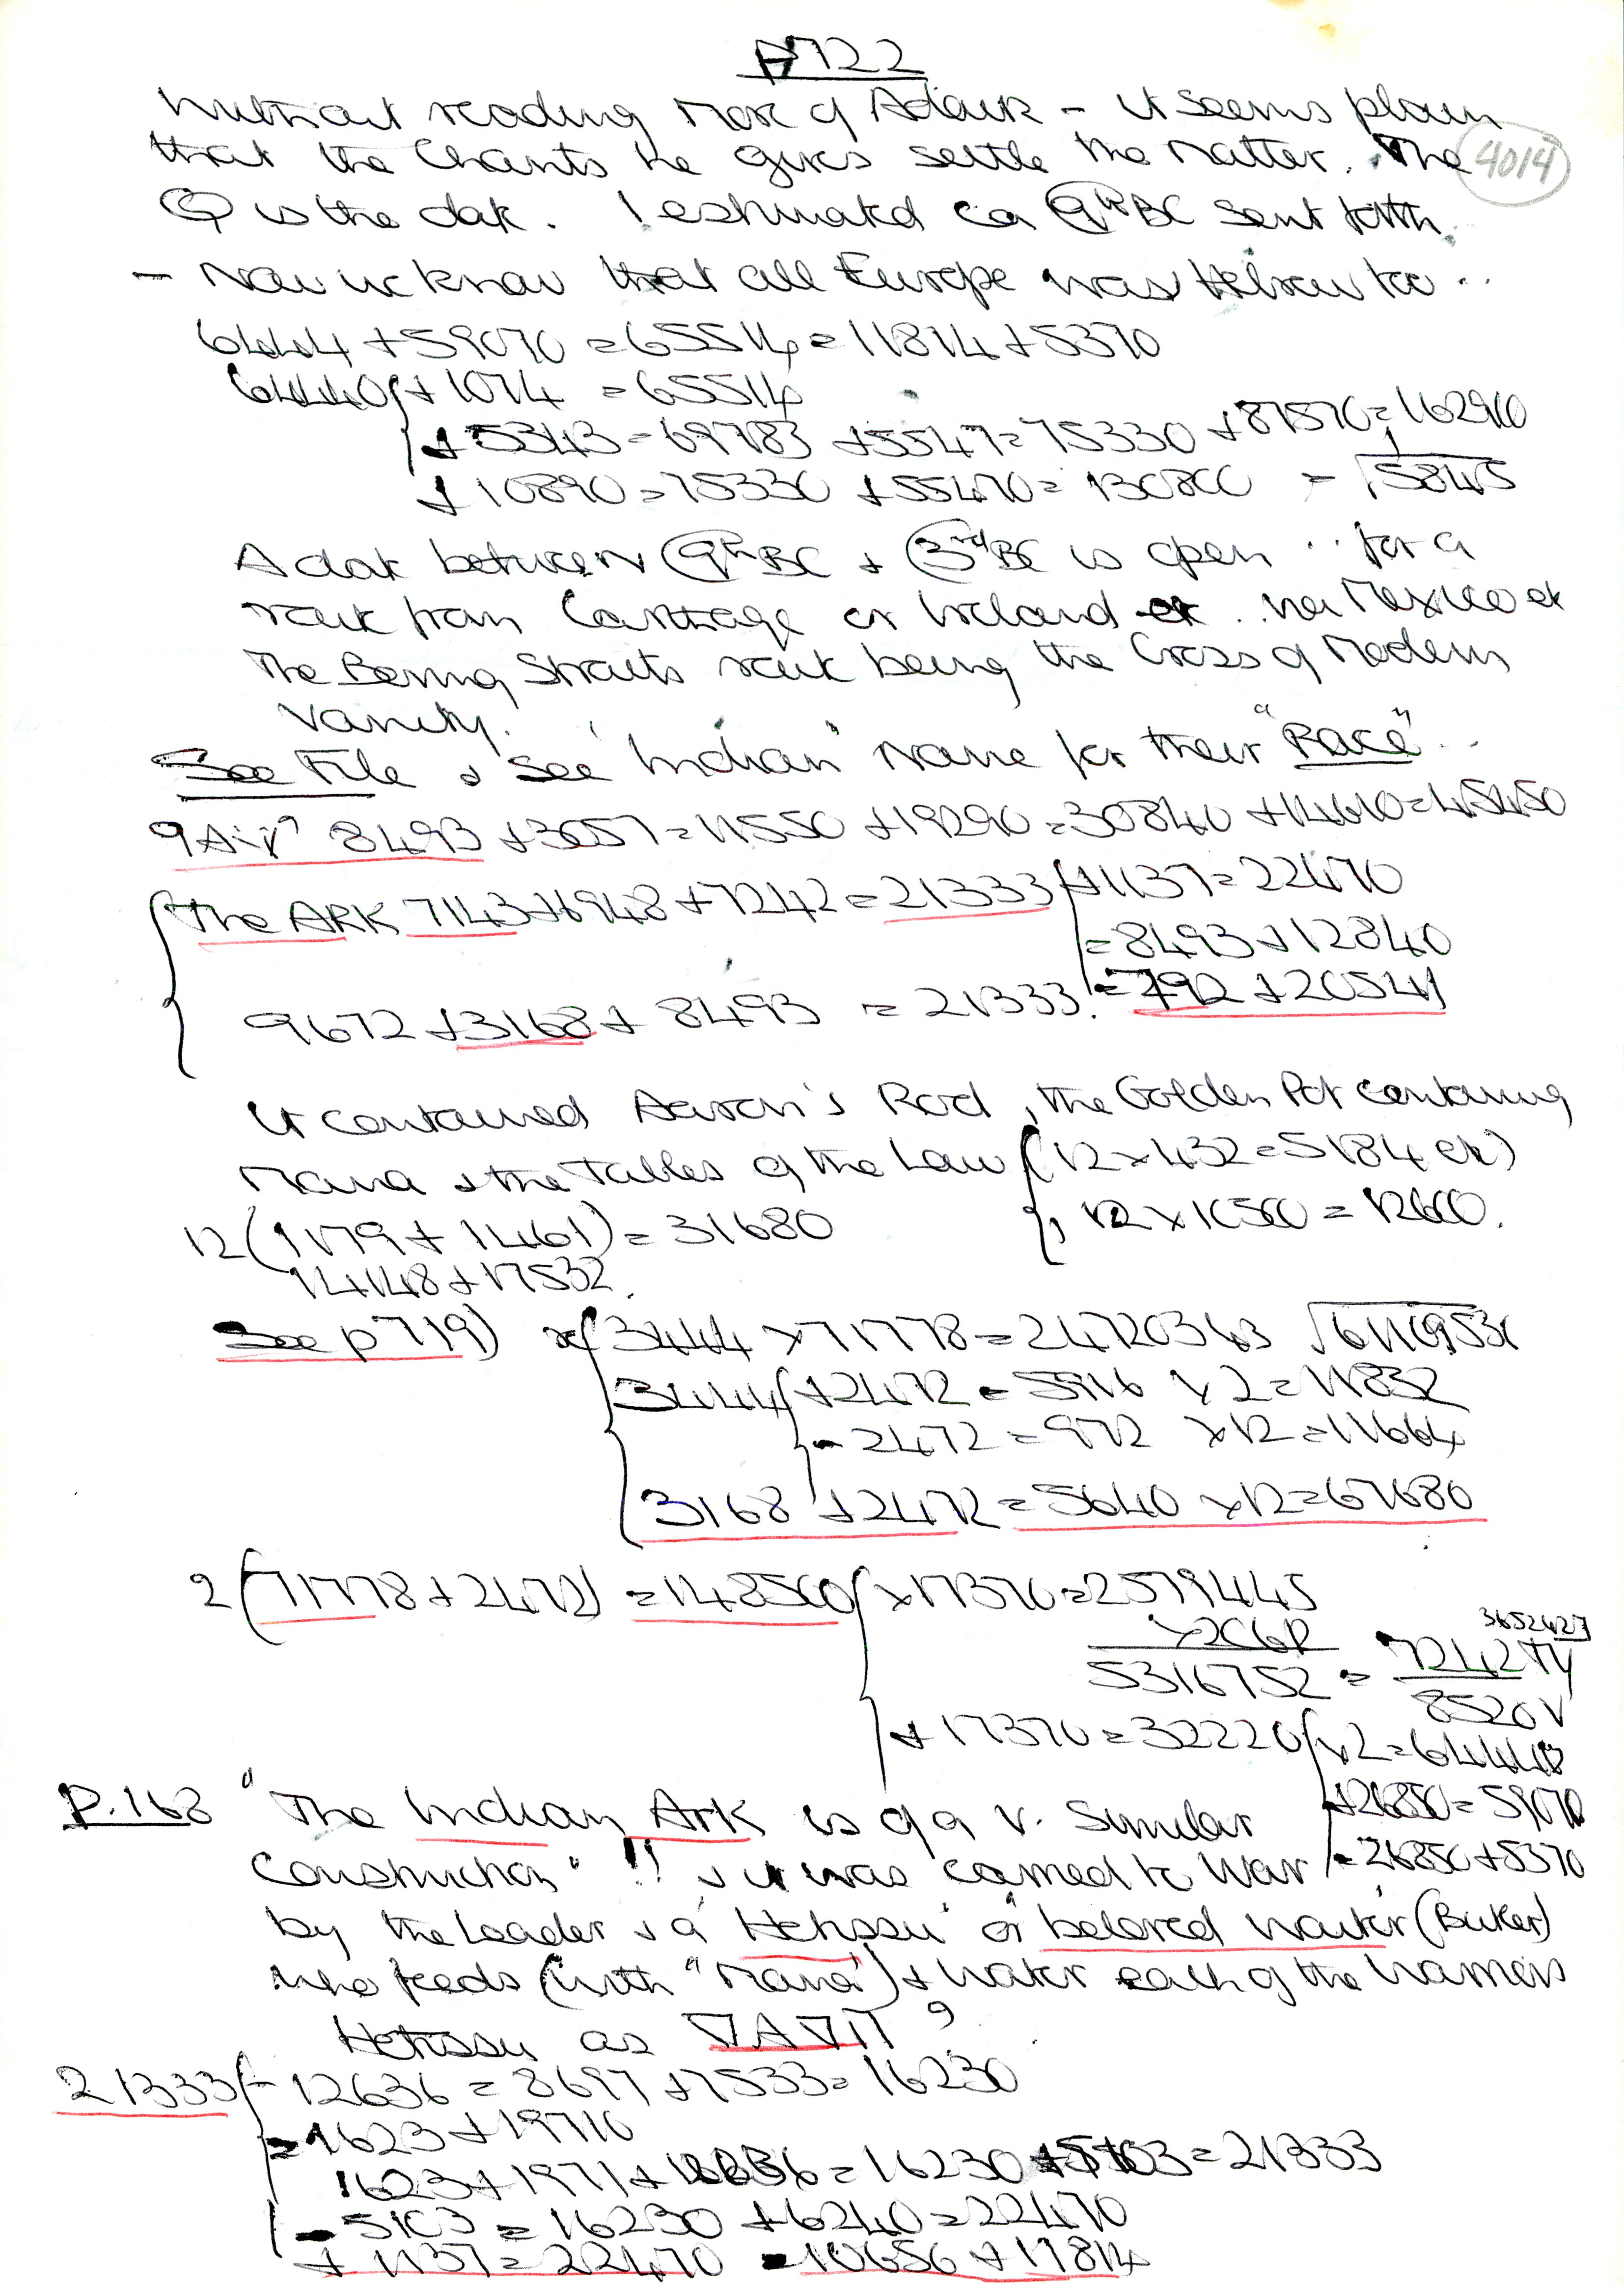 P722
Without reading More of Adair – it seems plain
that the Chants he gives settle the Matter. The
4014
Q is the date. I estimated ca 9th BC sent forth.
– Now we know that all Europe was Hebrew too ..
6444 + 59070 = 65514 = 11814 + 5370
64440 + 1074 = 65514
+ 5343 = 69783 + 5547 = 75330 + 87570 = 162900
+ 10890 = 75330 + 55470 = 130800 = √5845
A date between 9th BC + 3rd BC is open .. for a
route from Carthage or Ireland or .. via Mexico etc
The Bering Straits route being the Cross of Modern
Vanity.
See File & See 'Indian' Name for their "Race" ..
8493 + 3057 = 11550 + 19290 = 30840 + 14610 = 45450
The ARK 7143 + 6948 + 7242 = 21333 + 1137 = 22470
= 8493 + 12840
9672 + 3168 + 8493 = 21333. = 792 + 20541
It contained Aaron's Rod, the Golden Pot containing
Mana & the Tables of the Law (12 x 432 = 5184 etc)
12(1179 + 1461) = 31680 12 x 10500 = 12600.
14148 + 17532.
See p 719) 3444 x 71778 = 24720343 √61109531
3444 + 2472 = 5916 x 2 = 11832
- 2472 = 972 x 12 = 11664
3168 + 2472 = 5640 x 12 = 67680
2(71778 + 2472) = 148500 x 17370 = 2579445
x 2061.2 3652427
5316752 = 7242 TY
8520 V
+ 17370 = 32220 x 2 = 64440
P.168 "The Indian Ark is of a v. Similar + 26850 = 59070
Construction" !! & it was carried to War = 26850 + 5370
by the Leader & a 'Hetissu' or beloved waiter (Buker)
who feeds (with "Mana") & water each of the Warriors
Hetissu as
21333 - 12636 = 8697 + 7533 = 16230
= 1623 + 19710
1623 + 1971 + 12636 = 16230 + 5103 = 21333
- 5103 = 16230 + 6240 = 22470
+ 1137 = 22470 = 10656 + 11814